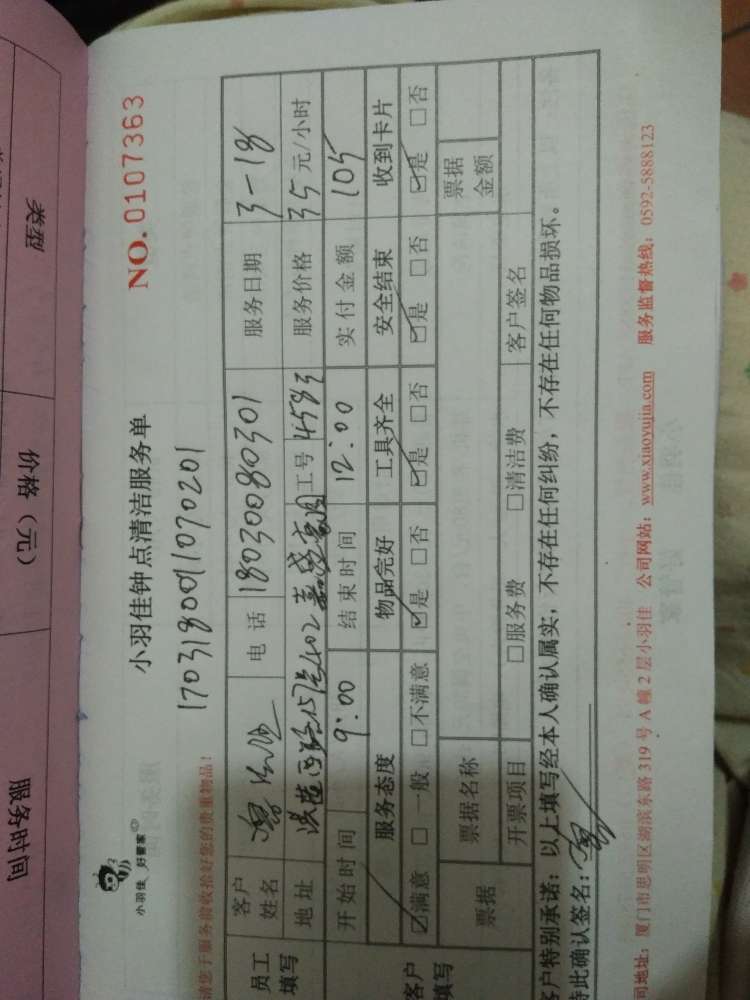 小羽佳 好管家
小羽佳钟点清洁服务单
NO. 0107363
1703180011070201
请您于服务前收拾好您的贵重物品!
员工填写
客户姓名
电话 18030080301
服务日期 3-18
地址
工号 4583
服务价格 35元/小时
开始时间 9:00
结束时间 12:00
实付金额 105
客户填写
服务态度 物品完好 工具齐全 安全结束 收到卡片
☑满意 □一般 □不满意 ☑是 □否 ☑是 □否 ☑是 □否 ☑是 □否
票据
票据名称
票据金额
开票项目 □服务费 □清洁费 客户签名
客户特别承诺:以上填写经本人确认属实,不存在任何纠纷,不存在任何物品损坏。
特此确认签名:
公司地址:厦门市思明区湖滨东路319号A幢2层小羽佳 公司网站:www.xiaoyujia.com 服务监督热线:0592-5888123
类型
价格(元)
服务时间